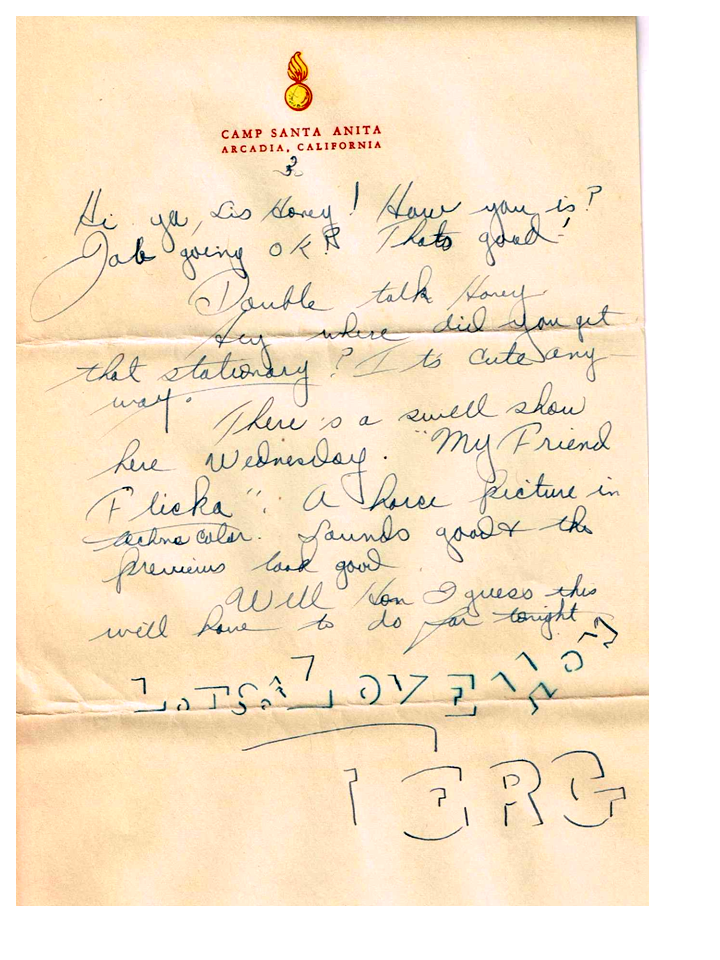 CAMP SANTA ANITA
ARCADIA, CALIFORNIA
3
Hi ya, Sis Honey! How you is?
Job going OK? Thats good!
Double talk Honey
Hey where did you get
that stationary? It's cute any-
way.
There is a swell show
here Wednesday. "My Friend
Flicka". A horse picture in
techno color. Sounds good & the
previews look good
Well Hon I guess this
will have to do for tonight
LOTSA LOVE